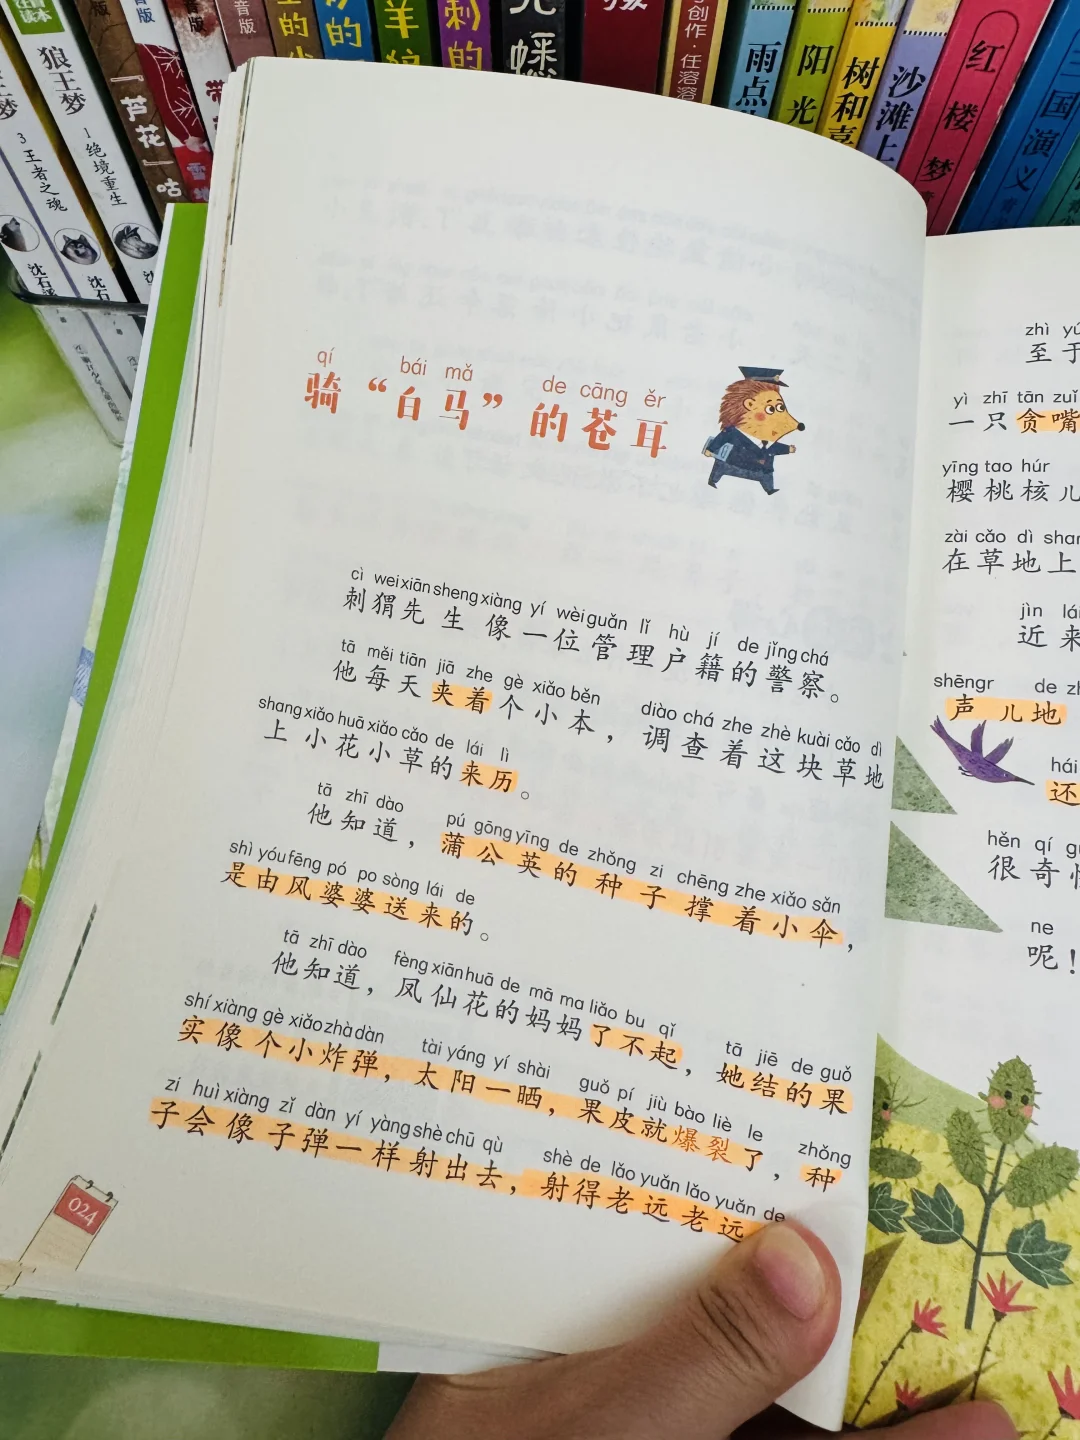 狼王梦
3 王者之魂
1 绝境重生
沈石溪
『芦花』
音版
雨点
阳光
树和喜
沙滩上
红楼梦
三国演义
创作·任溶溶
qí bái mǎ de cāng ěr
骑“白马”的苍耳
cì wei xiān sheng xiàng yí wèi guǎn lǐ hù jí de jǐng chá
刺猬先生像一位管理户籍的警察。
tā měi tiān jiā zhe gè xiǎo běn diào chá zhe zhè kuài cǎo dì
他每天夹着个小本，调查着这块草地
shang xiǎo huā xiǎo cǎo de lái lì
上小花小草的来历。
tā zhī dào pú gōng yīng de zhǒng zi chēng zhe xiǎo sǎn
他知道，蒲公英的种子撑着小伞，
shì yóu fēng pó po sòng lái de
是由风婆婆送来的。
tā zhī dào fèng xiān huā de mā ma liǎo bu qǐ tā jiē de guǒ
他知道，凤仙花的妈妈了不起，她结的果
shí xiàng gè xiǎo zhà dàn tài yáng yí shài guǒ pí jiù bào liè le zhǒng
实像个小炸弹，太阳一晒，果皮就爆裂了，种
zi huì xiàng zǐ dàn yí yàng shè chū qù shè de lǎo yuǎn lǎo yuǎn de
子会像子弹一样射出去，射得老远老远
024
zhì yú
至于
yì zhī tān zuǐ
一只贪嘴
yīng tao húr
樱桃核儿
zài cǎo dì shang
在草地上
jìn lái
近来
shēngr de
声儿地
hái
还
hěn qí
很奇怪
ne
呢！